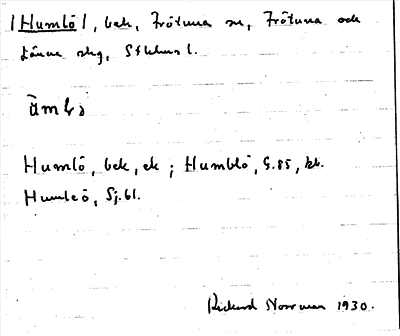 |Humlö|, bek, Frötuna sn, Frötuna och
Länna slg, Sthlms l.
ùmlö
Humlö, bek, ek; Humblö, G.85, kb.
Humleö, Sj.61.
Rickard Norrman 1930.